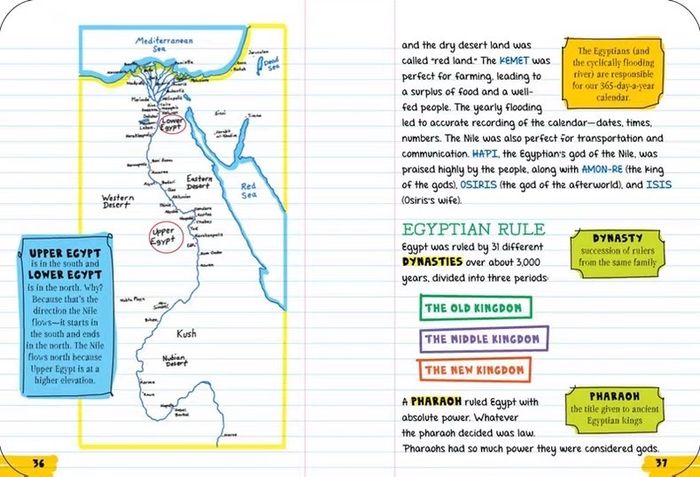 Mediterranean
Sea
Jerusalem
Dead
Sea
Lower
Egypt
Sinai
Eastern
Desert
Western
Desert
Red
Sea
Upper
Egypt
Kush
Nubian
Desert
UPPER EGYPT
is in the south and
LOWER EGYPT
is in the north. Why?
Because that's the
direction the Nile
flows—it starts in
the south and ends
in the north. The Nile
flows north because
Upper Egypt is at a
higher elevation.
36
and the dry desert land was
called "red land." The KEMET was
perfect for farming, leading to
a surplus of food and a well-
fed people. The yearly flooding
led to accurate recording of the calendar—dates, times,
numbers. The Nile was also perfect for transportation and
communication. HAPI, the Egyptian's god of the Nile, was
praised highly by the people, along with AMON-RE (the king
of the gods), OSIRIS (the god of the afterworld), and ISIS
(Osiris's wife).
The Egyptians (and
the cyclically flooding
river) are responsible
for our 365-day-a-year
calendar.
EGYPTIAN RULE
Egypt was ruled by 31 different
DYNASTIES over about 3,000
years, divided into three periods:
DYNASTY
succession of rulers
from the same family
THE OLD KINGDOM
THE MIDDLE KINGDOM
THE NEW KINGDOM
A PHARAOH ruled Egypt with
absolute power. Whatever
the pharaoh decided was law.
Pharaohs had so much power they were considered gods.
PHARAOH
the title given to ancient
Egyptian kings
37